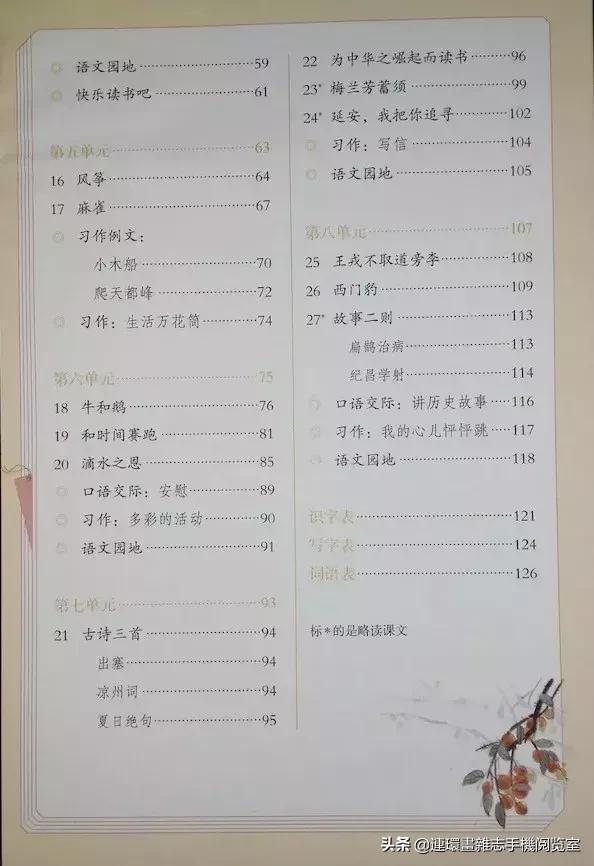 语文园地……59
快乐读书吧……61
第五单元……63
16 风筝……64
17 麻雀……67
习作例文：
小木船……70
爬天都峰……72
习作：生活万花筒……74
第六单元……75
18 牛和鹅……76
19 和时间赛跑……81
20 滴水之恩……85
口语交际：安慰……89
习作：多彩的活动……90
语文园地……91
第七单元……93
21 古诗三首……94
出塞……94
凉州词……94
夏日绝句……95
22 为中华之崛起而读书……96
23* 梅兰芳蓄须……99
24* 延安，我把你追寻……102
习作：写信……104
语文园地……105
第八单元……107
25 王戎不取道旁李……108
26 西门豹……109
27* 故事二则……113
扁鹊治病……113
纪昌学射……114
口语交际：讲历史故事……116
习作：我的心儿怦怦跳……117
语文园地……118
识字表……121
写字表……124
词语表……126
标*的是略读课文
头条 @連環畫雜志手機阅览室